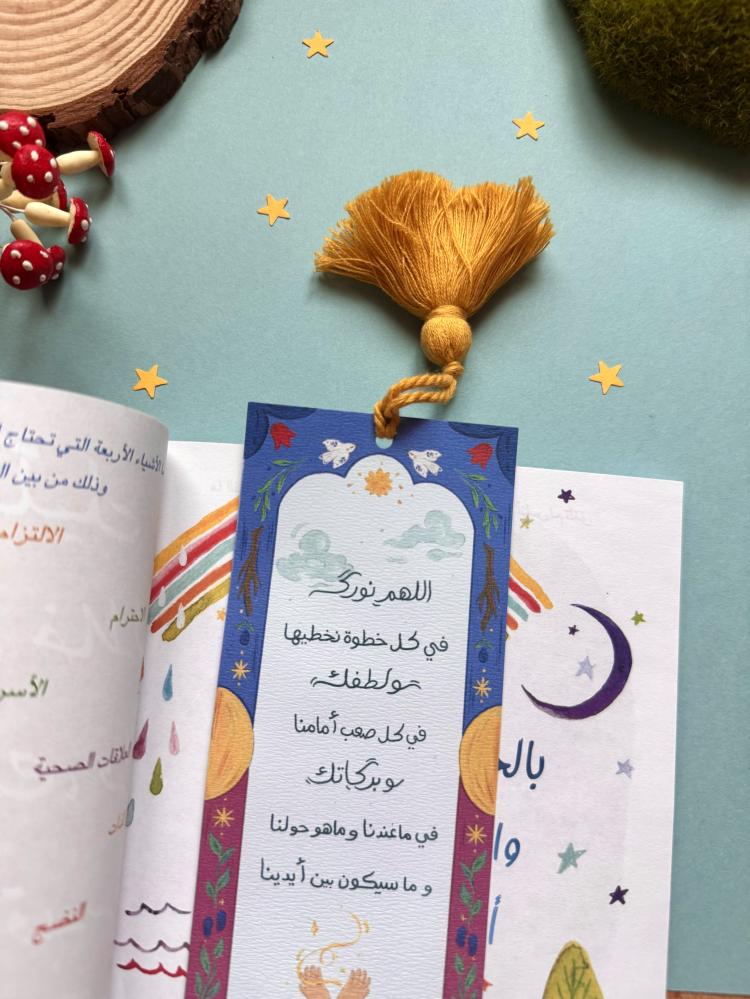 الأشياء الأربعة التي تحتاج
وذلك من بين
الالتزام
الاحترام
العلاقات الصحية
النضج
اللهم نورك
في كل خطوة نخطيها
ولطفك
في كل صعب أمامنا
وبركاتك
في ما عندنا وماهو حولنا
و ما سيكون بين أيدينا